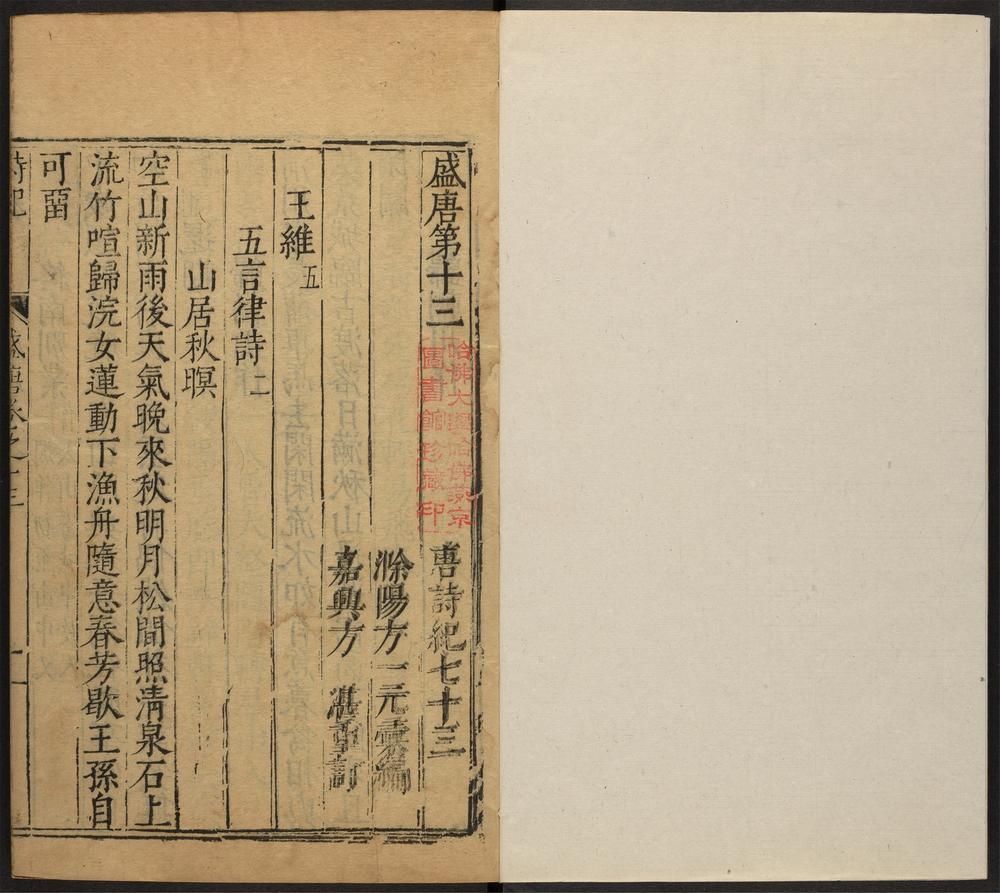 盛唐第十三　唐詩紀七十三
哈佛大學哈佛燕京
圖書館珍藏印
滁陽方一元彙編
嘉興方　湛重訂
王維五
五言律詩二
山居秋暝
空山新雨後天氣晚來秋明月松間照清泉石上
流竹喧歸浣女蓮動下漁舟隨意春芳歇王孫自
可留
詩紀　盛唐卷之十三　一